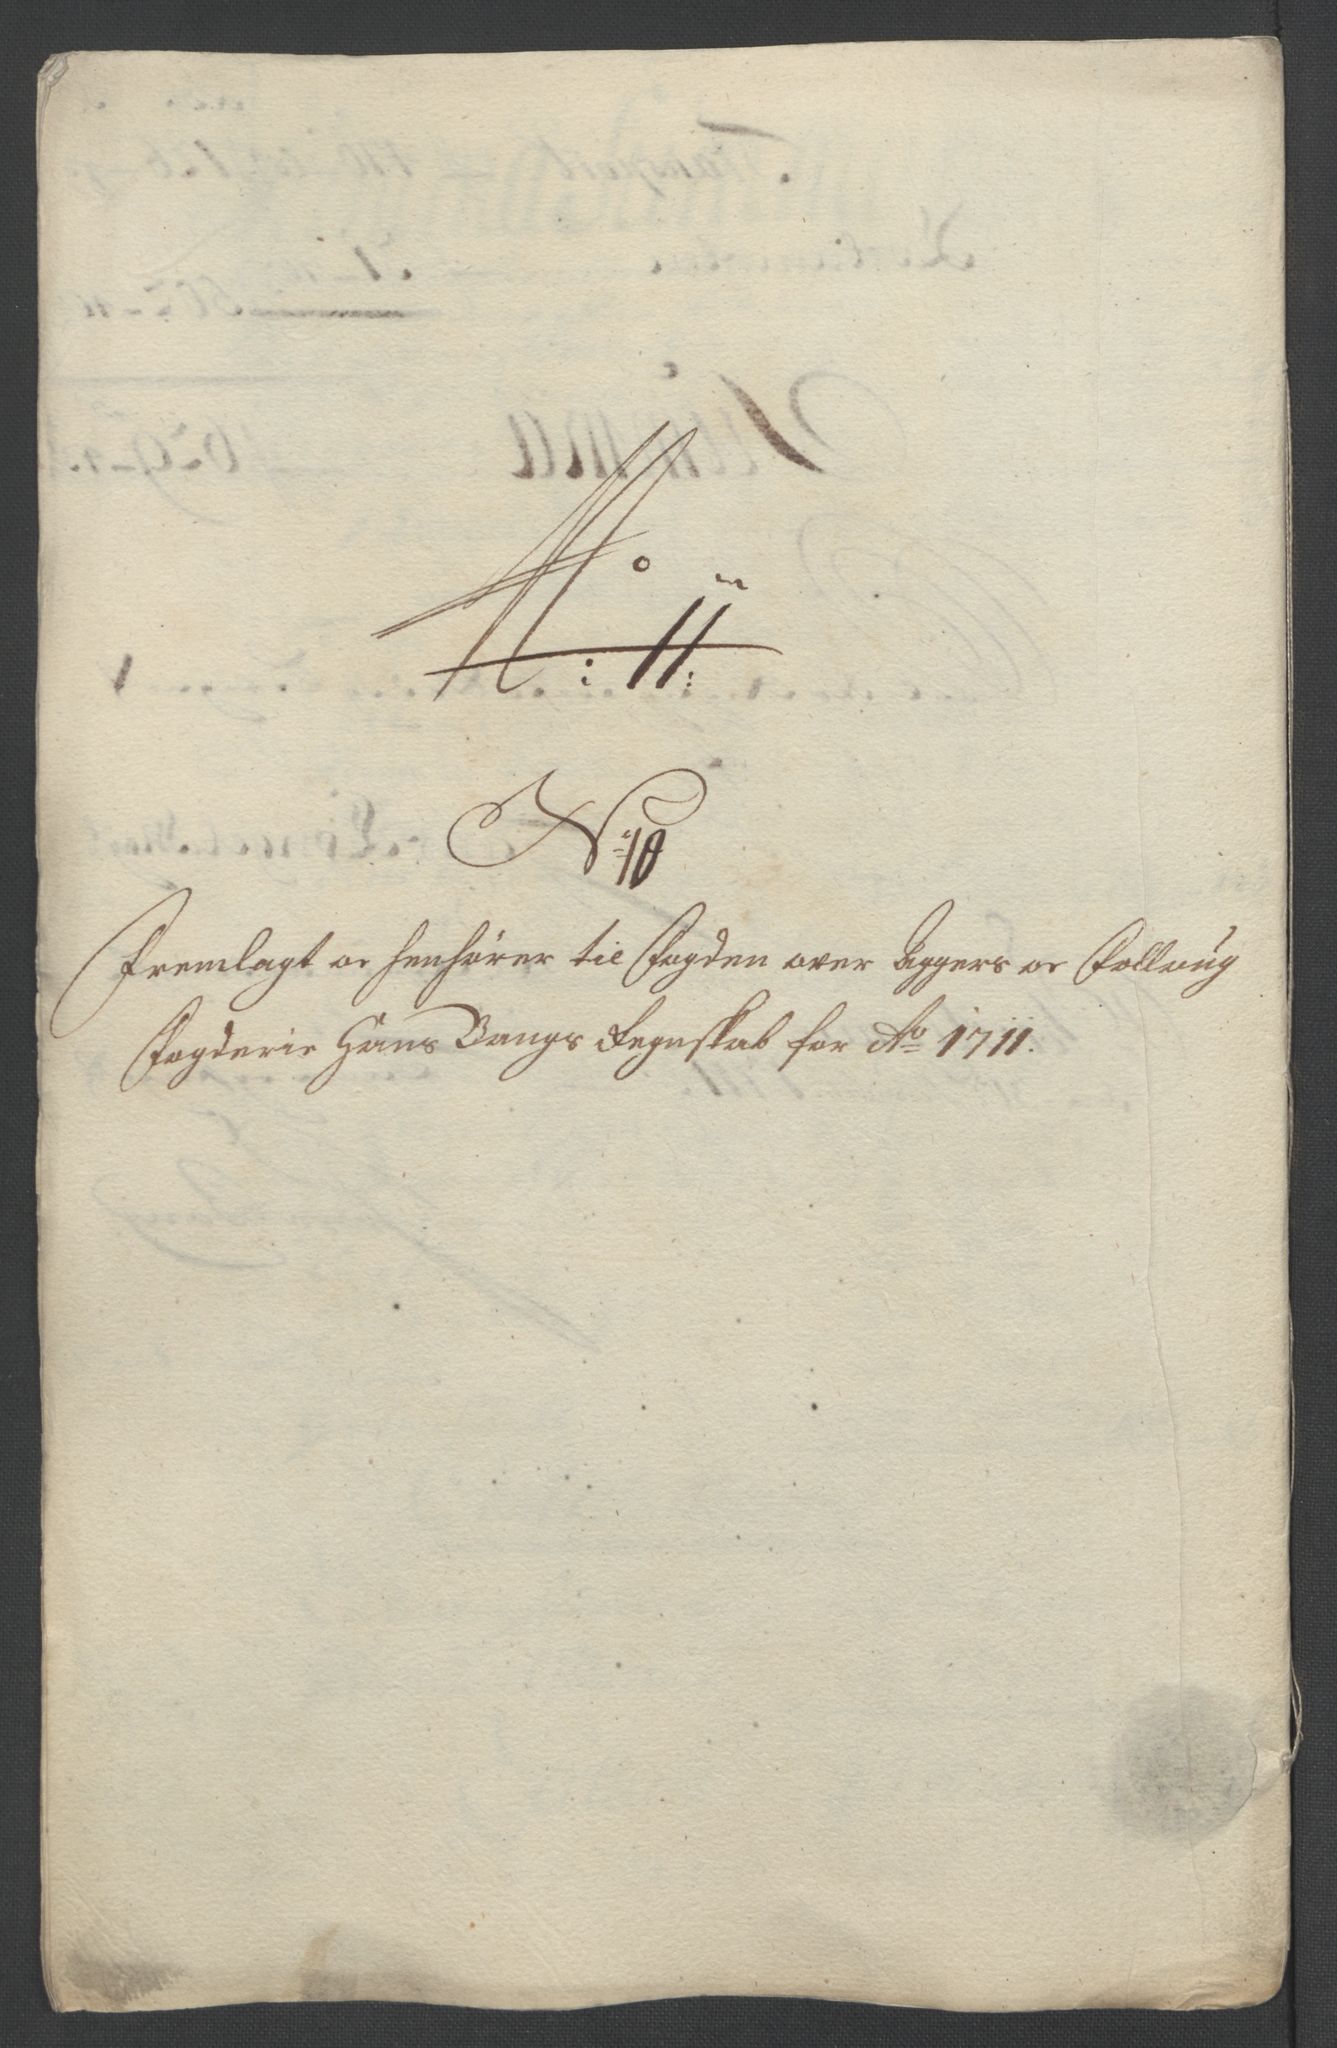 No: 11:
No: 10
Fremlagt oc henhører til Fogden over Aggers oc Folloug
Fogderie Hans Bangs Regnskab for Ao 1711.